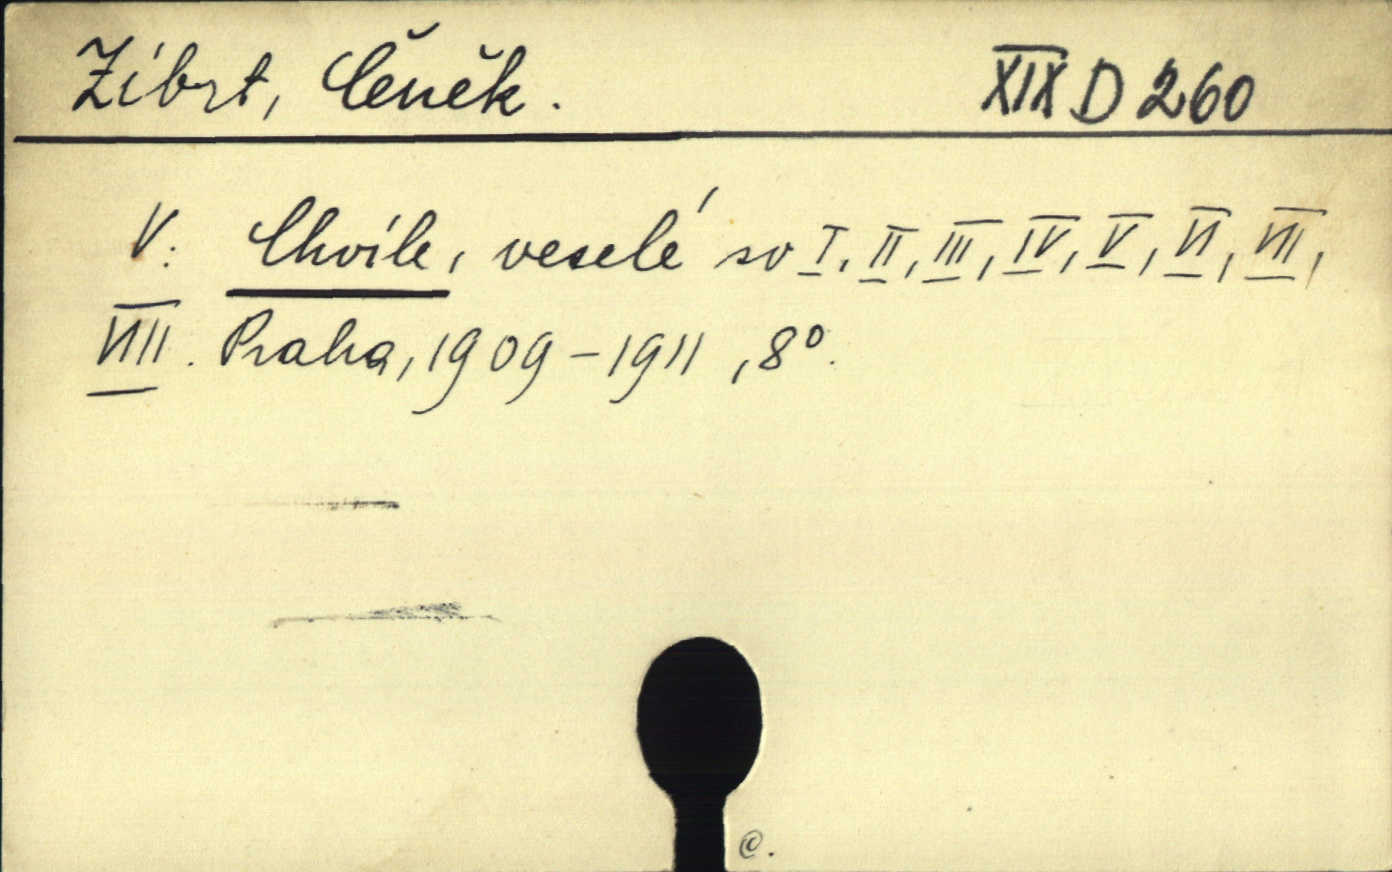 Zíbrt, Čeněk. XIX D 260
V: Chvíle, veselé sv I, II, III, IV, V, VI, VII,
VIII. Praha, 1909-1911, 8°.
©.